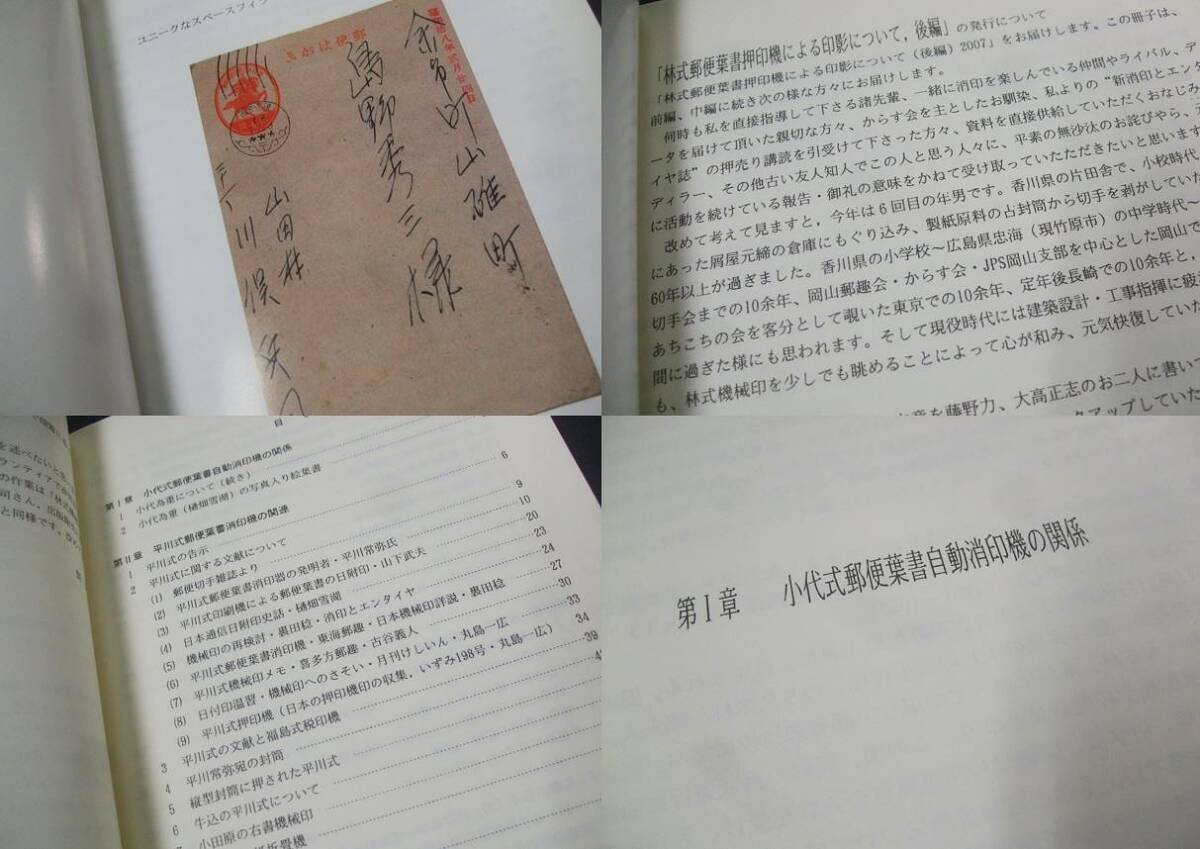 ユニークなスペースフィ
郵便はがき
余丁町山碓町
島野秀三様
山田村
「林式郵便葉書押印機による印影について，後編」の発行について
「林式郵便葉書押印機による印影について（後編）2007」をお届けします。この冊子は、
前編、中編に続き次の様な方々にお届けします。
何時も私を直接指導して下さる諸先輩、一緒に消印を楽しんでいる仲間やライバル、デ
ータを届けて頂いた親切な方々、からす会を主としたお馴染、私よりの“新消印とエンタ
イヤ誌”の押売り講読を引受けて下さった方々、資料を直接供給していただくおなじみ
ディラー、その他古い友人知人でこの人と思う人々に、平素の無沙汰のお詫びやら、
に活動を続けている報告・御礼の意味をかねて受け取っていただきたいと思います
改めて考えて見ますと，今年は6回目の年男です。香川県の片田舎で、小校時代
にあった屑屋元締の倉庫にもぐり込み、製紙原料の古封筒から切手を剥がしていた
60年以上が過ぎました。香川県の小学校～広島県忠海（現竹原市）の中学時代～
切手会までの10余年、岡山郵趣会・からす会・JPS岡山支部を中心とした岡山で
あちこちの会を客分として覗いた東京での10余年、定年後長崎での10余年と，
間に過ぎた様にも思われます。そして現役時代には建築設計・工事指揮に疲
も、林式機械印を少しでも眺めることによって心が和み、元気快復していた
を藤野力、大高正志のお二人に書いて
クアップしていた
を述べたいと思
ランティア
の作業は「林式
司さん，出版
と同様です。
目
第Ⅰ章 小代式郵便葉書自動消印機の関係
1 小代為重について（続き） 6
2 小代為重（樋畑雪湖）の写真入り絵葉書
第Ⅱ章 平川式郵便葉書消印機の関連 9
1 平川式の告示 10
2 平川式に関する文献について
(1) 郵便切手雑誌より 20
(2) 平川式郵便葉書消印器の発明者・平川常弥氏 23
(3) 平川式印刷機による郵便葉書の日附印・山下武夫 24
(4) 日本通信日附印史話・樋畑雪湖
(5) 機械印の再検討・裏田稔・消印とエンタイヤ 27
(6) 平川式郵便葉書消印機・東海郵趣・日本機械印詳説・裏田稔 30
(7) 平川式機械印メモ・喜多方郵趣・古谷義人 33
(8) 日付印温習・機械印へのさそい・月刊けしいん・丸島一広 34
(9) 平川式押印機（日本の押印機印の収集，いずみ198号・丸島一広） 39
3 平川式の文献と福島式税印機
4 平川常弥宛の封筒
5 縦型封筒に押された平川式
6 牛込の平川式について
7 小田原の右書機械印
第Ⅰ章 小代式郵便葉書自動消印機の関係